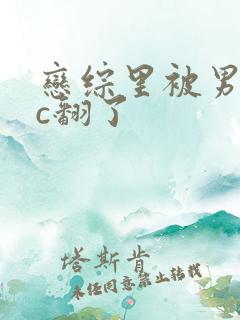 戀综里被男
c翻了
塔斯肯
未经同意禁止转载